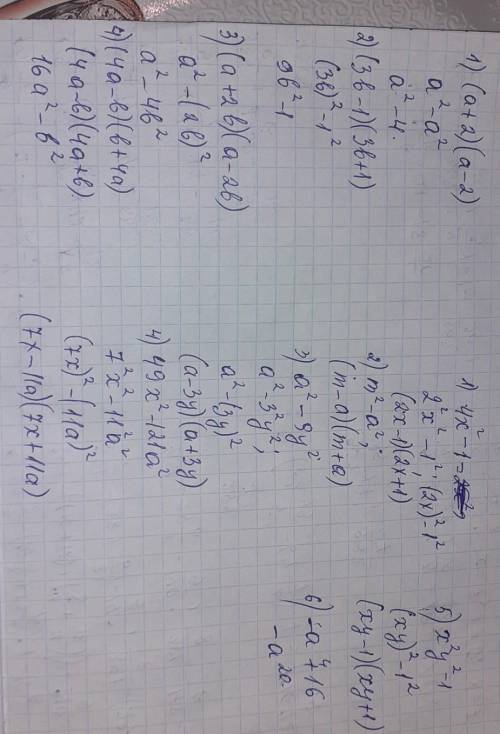 1) (a+2)(a-2)
a²-a²
a²-4.
2) (3b-1)(3b+1)
(3b)²-1²
9b²-1
3) (a+2b)(a-2b)
a²-(2b)²
a²-4b²
4) (4a-b)(b+4a)
(4a-b)(4a+b).
16a²-b²
1) 4x²-1-
2²x²-1²; (2x)²-1²
(2x-1)(2x+1)
2) m²-a²;
(m-a)(m+a)
3) a²-9y²
a²-3²y²;
a²-(3y)²
(a-3y)(a+3y)
4) 49x²-121a²
7²x²-11²a²
(7x)²-(11a)²
(7x-11a)(7x+11a)
5) x²y²-1
(xy)²-1²
(xy-1)(xy+1)
6) -a⁴+16